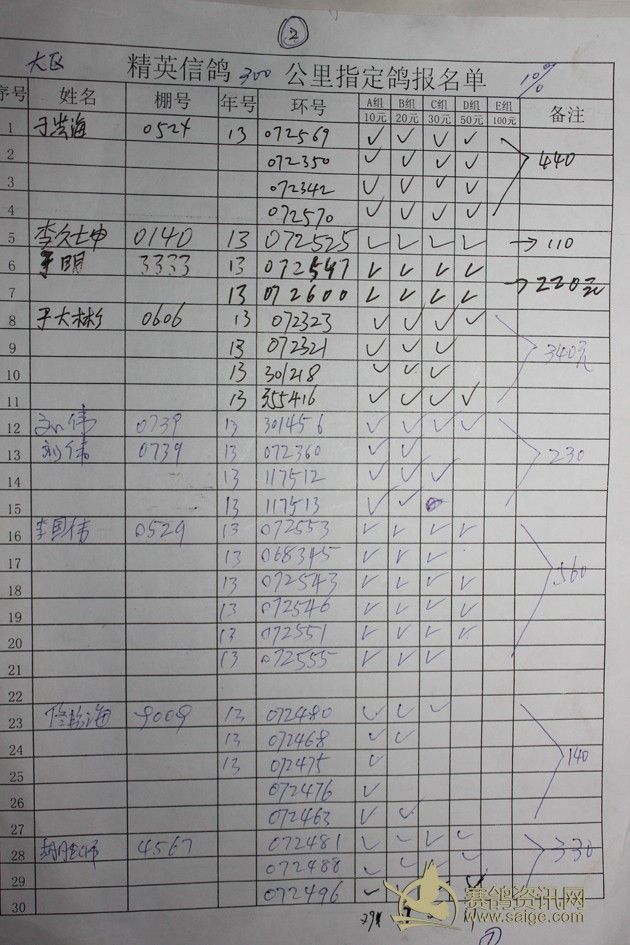 ②
大区 精英信鸽 300 公里指定鸽报名单 10%
序号 姓名 棚号 年号 环号 A组 10元 B组 20元 C组 30元 D组 50元 E组 100元 备注
1 于洪海 0524 13 072569 ✓ ✓ ✓ ✓
2 072350 ✓ ✓ ✓ ✓ 440
3 072342 ✓ ✓ ✓ ✓
4 072570 ✓ ✓ ✓ ✓
5 0140 13 072525 ✓ ✓ ✓ ✓ → 110
6 于明 3333 13 072597 ✓ ✓ ✓ ✓
7 13 072600 ✓ ✓ ✓ ✓ → 220元
8 于大彬 0606 13 072323 ✓ ✓ ✓ ✓
9 13 072321 ✓ ✓ ✓ 340元
10 13 301218 ✓ ✓ ✓
11 13 355416 ✓ ✓ ✓ ✓
12 刘伟 0739 13 301456 ✓ ✓ ✓ ✓
13 刘伟 0739 13 072360 ✓ ✓ 230
14 13 117512 ✓ ✓ ✓
15 13 117513 ✓ ✓
16 李国伟 0529 13 072553 ✓ ✓ ✓ ✓
17 13 068345 ✓ ✓ ✓
18 13 072543 ✓ ✓ ✓ ✓ 560
19 13 072546 ✓ ✓ ✓ ✓
20 13 072551 ✓ ✓ ✓ ✓
21 13 072555 ✓ ✓ ✓
22
23 9009 13 072480 ✓ ✓ ✓
24 13 072468 ✓ ✓
25 13 072475 ✓ 140
26 072476 ✓
27 072463 ✓ ✓
28 4567 072481 ✓ ✓ ✓ ✓
29 072488 ✓ ✓ ✓ ✓ 330
30 072496 ✓ ✓
赛鸽资讯网
www.saige.com